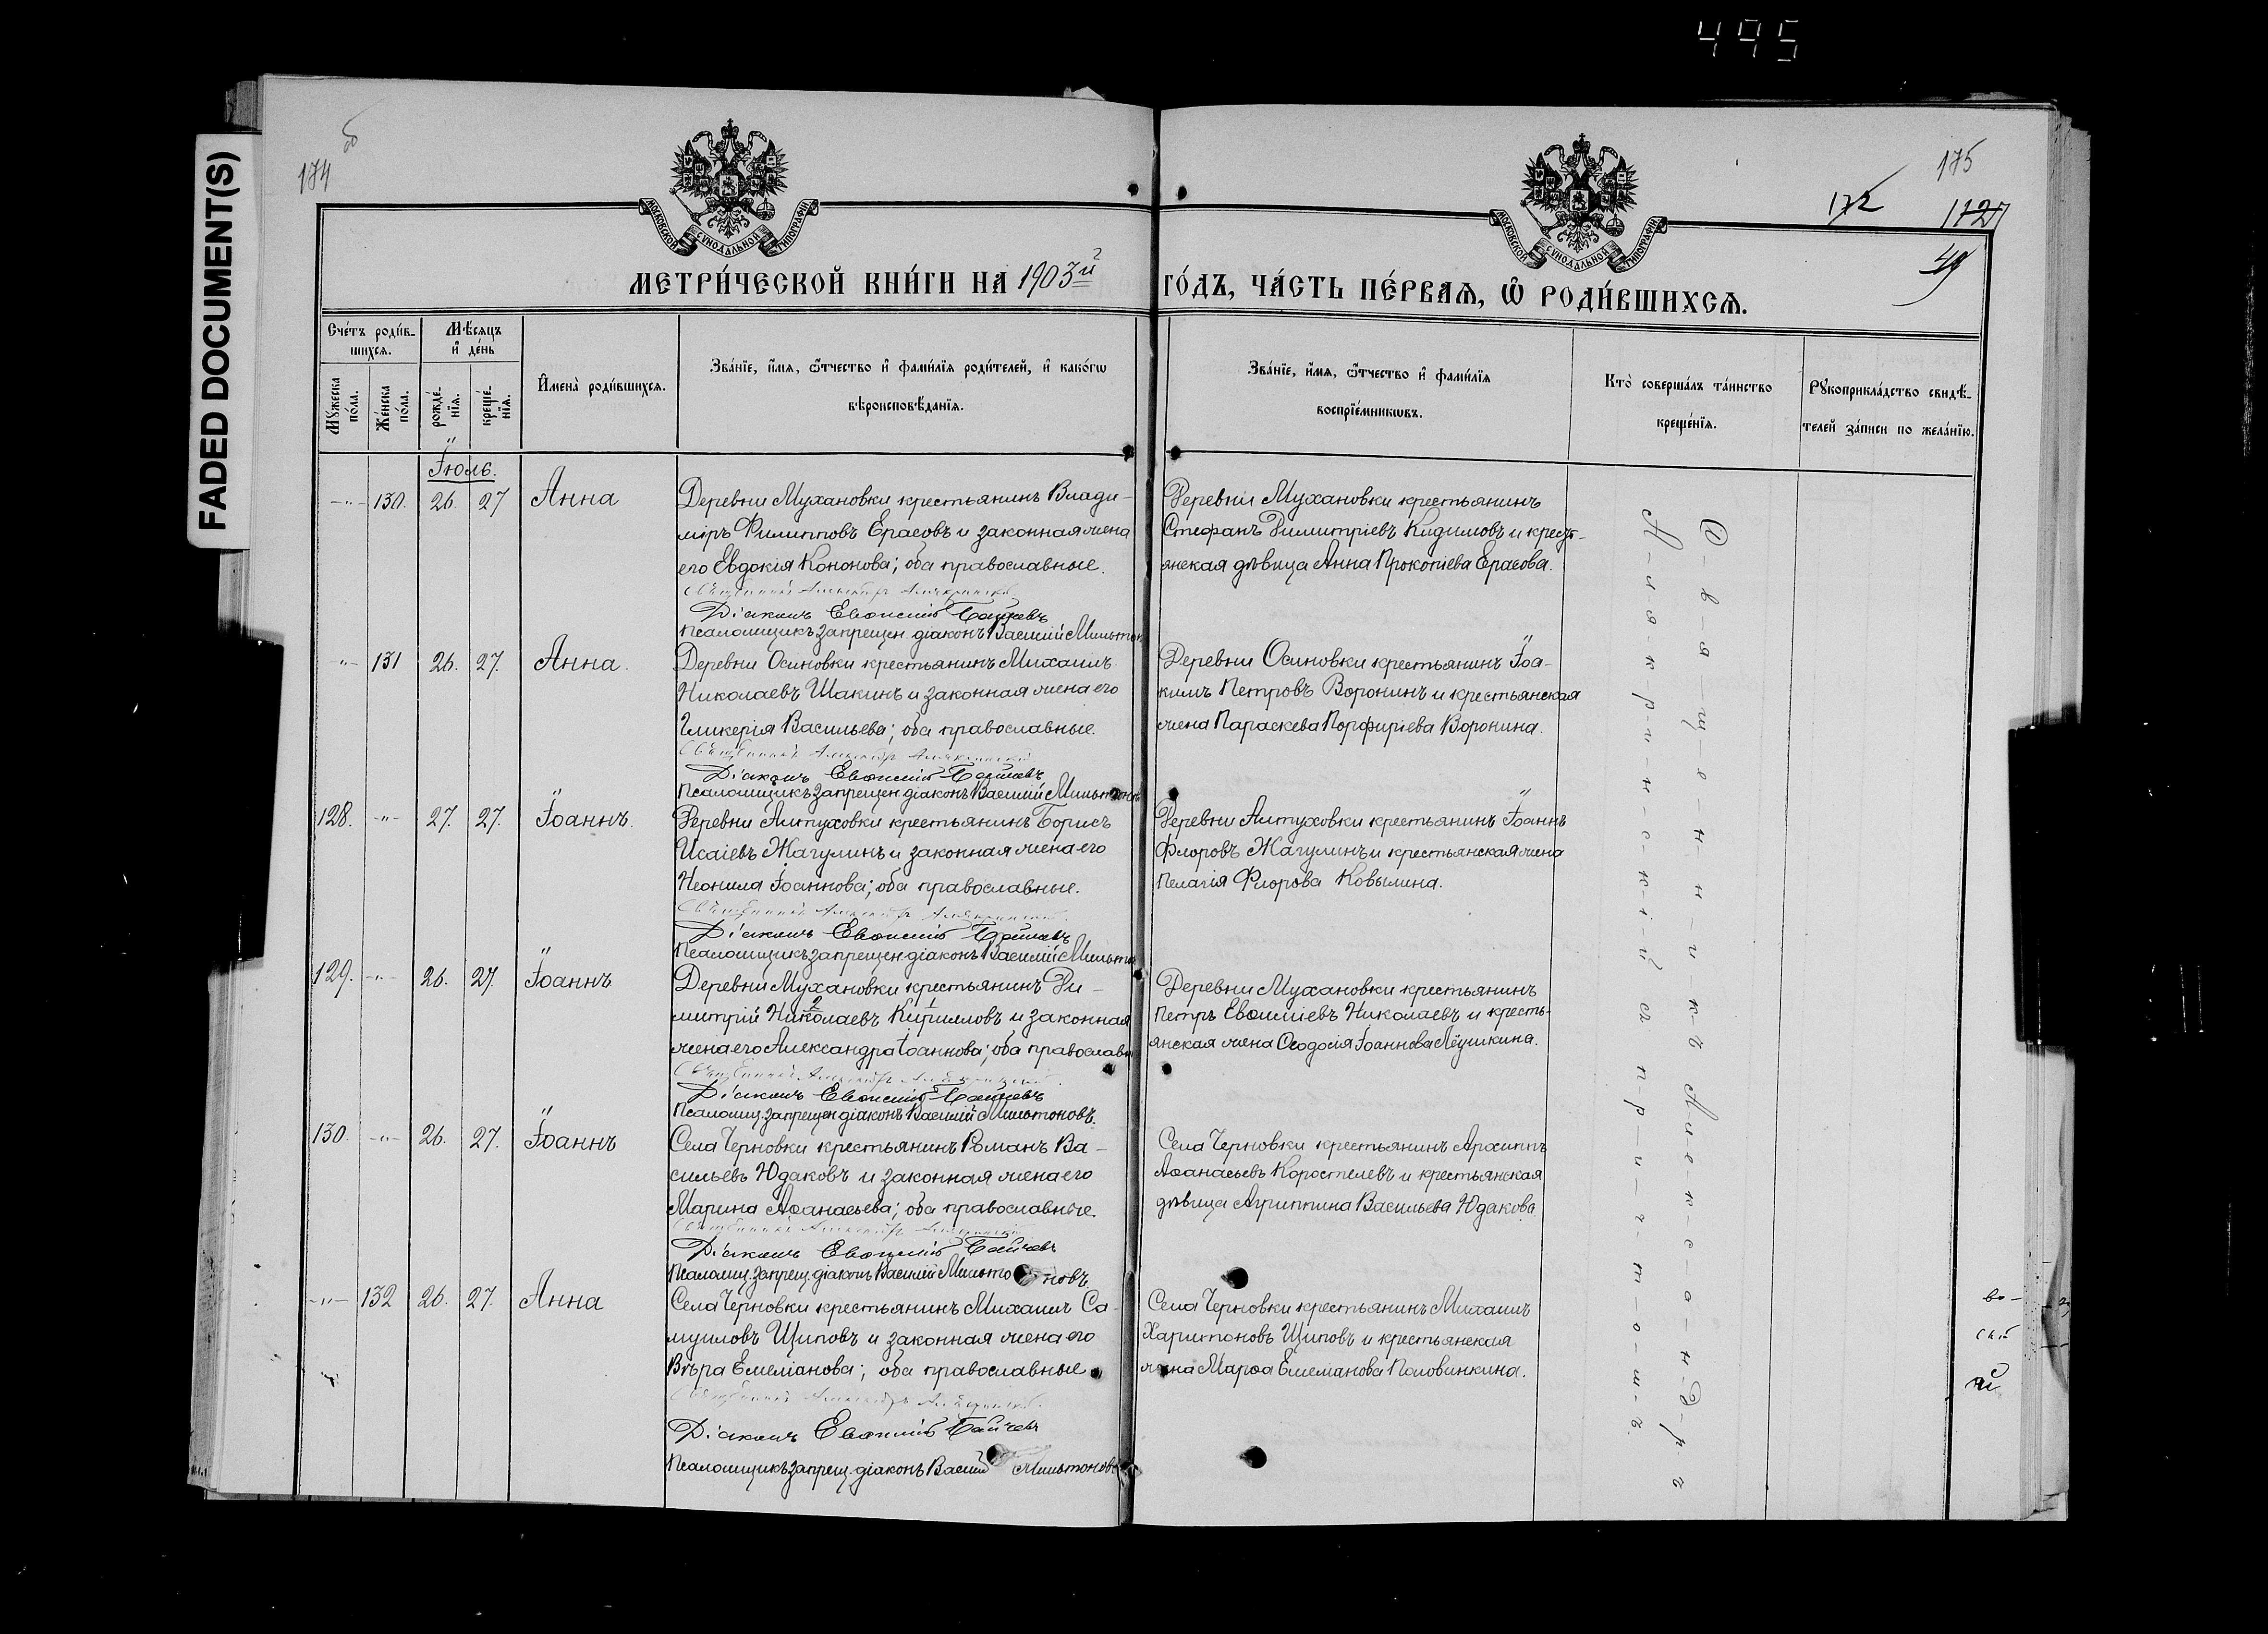 495
FADED DOCUMENT(S)
174
об
175
172
1727
49
МОСКОВСКОЙ СѴНОДАЛЬНОЙ ТИПОГРАФІИ
МОСКОВСКОЙ СѴНОДАЛЬНОЙ ТИПОГРАФІИ
МЕТРИ́ЧЕСКОЙ КНИ́ГИ НА 1903й ГО́ДЪ, ЧА́СТЬ ПЕ́РВАѦ, Ѽ РОДИ́ВШИХСѦ.
Сче́тъ роди́в-
шихсѧ.
Мꙋжеска по́ла.
Же́нска по́ла.
Мѣ́сѧцъ
и҆ де́нь
рожде́-
нїѧ.
креще́-
нїѧ.
И҆мена̀ роди́вшихсѧ.
Зва́нїе, и҆́мѧ, ѻ҆́тчество и҆ фами́лїѧ роди́телей, и҆ како́гѡ
вѣроисповѣ́данїѧ.
Зва́нїе, и҆́мѧ, ѻ҆́тчество и҆ фами́лїѧ
воспрїе́мникѡвъ.
Кто̀ соверша́лъ та́инство
креще́нїѧ.
Рꙋкоприкла́дство свидѣ́-
телей за́писи по жела́нїю.
Іюль.
-"- 130. 26. 27 Анна
Деревни Мухановки крестьянинъ Влади-
міръ Филипповъ Ерасовъ и законная жена
его Евдокія Кононова; оба православные.
Священникъ Александръ Алякринскій
Діаконъ Евѳимій
Псаломщикъ запрещен. діаконъ Василій Мильтон
Деревни Мухановки крестьянинъ
Стефанъ Димитріевъ Кидимовъ и крест-
янская дѣвица Анна Прокопіева Ерасова.
-"- 131 26. 27. Анна.
Деревни Осиновки крестьянинъ Михаилъ
Николаевъ Шакинъ и законная жена его
Гликерія Васильева; оба православные.
Священникъ Александръ Алякринскій
Діаконъ Евѳимій
Псаломщикъ запрещен. діаконъ Василій Мильтоновъ
Деревни Осиновки крестьянинъ Іоа-
кимъ Петровъ Воронинъ и крестьянская
жена Параскева Порфиріева Воронина.
128. -"- 27. 27. Іоаннъ.
Деревни Алтуховки крестьянинъ Борисъ
Исаіевъ Жагулинъ и законная жена его
Неонила Іоаннова; оба православные.
Священникъ Александръ Алякринскій.
Діаконъ Евѳимій
Псаломщикъ запрещен. діаконъ Василій Мильтон
Деревни Алтуховки крестьянинъ Іоаннъ
Флоровъ Жагулинъ и крестьянская жена
Пелагія Флорова Ковылина.
129. -"- 26. 27. Іоаннъ
Деревни Мухановки крестьянинъ Ди-
митрій Николаевъ Кирилловъ и законная
2 1
жена его Александра Іоаннова; оба православн
Священникъ Александръ Алякринскій.
Діаконъ Евѳимій
Псаломщ. запрещен діаконъ Василій Мильтоновъ.
Деревни Мухановки крестьянинъ
Петръ Евѳиміевъ Николаевъ и кресть-
янская жена Ѳеодосія Іоаннова Лёушкина.
130. -"- 26. 27. Іоаннъ
Села Черновки крестьянинъ Романъ Ва-
сильевъ Юдаковъ и законная жена его
Марина Аѳанасьева; оба православные.
Священникъ Александръ Алякринскій
Діаконъ Евѳимій
Псаломщ. запрещ. діаконъ Василій Мильтоновъ
Села Черновки крестьянинъ Архиппъ
Аѳанасьевъ Коростелевъ и крестьянская
дѣвица Агриппина Васильева Юдакова
-"- 132 26. 27. Анна
Села Черновки крестьянинъ Михаилъ Са-
муиловъ Щиповъ и законная жена его
Вѣра Емеліанова; оба православные
Священникъ Александръ Алякринскій.
Діаконъ Евѳимій
Псаломщикъ запрещ. діаконъ Василій Мильтоновъ
Села Черновки крестьянинъ Михаилъ
Харитоновъ Щиповъ и крестьянская
жена Марѳа Емельанова Половинкина.
С-в-я-щ-е-н-н-и-к-ъ А-л-е-к-с-а-н-д-р-ъ
А-л-я-к-р-и-н-с-к-і-й съ п-р-и-ч-т-о-м-ъ.